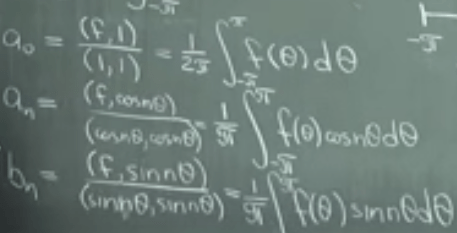 -π
-π
a₀ = (f, 1) / (1, 1) = 1/2π ∫_{-π}^{π} f(θ) dθ
aₙ = (f, cosnθ) / (cosnθ, cosnθ) = 1/π ∫_{-π}^{π} f(θ) cosnθdθ
bₙ = (f, sinnθ) / (sinnθ, sinnθ) = 1/π ∫^{π} f(θ) sinnθdθ